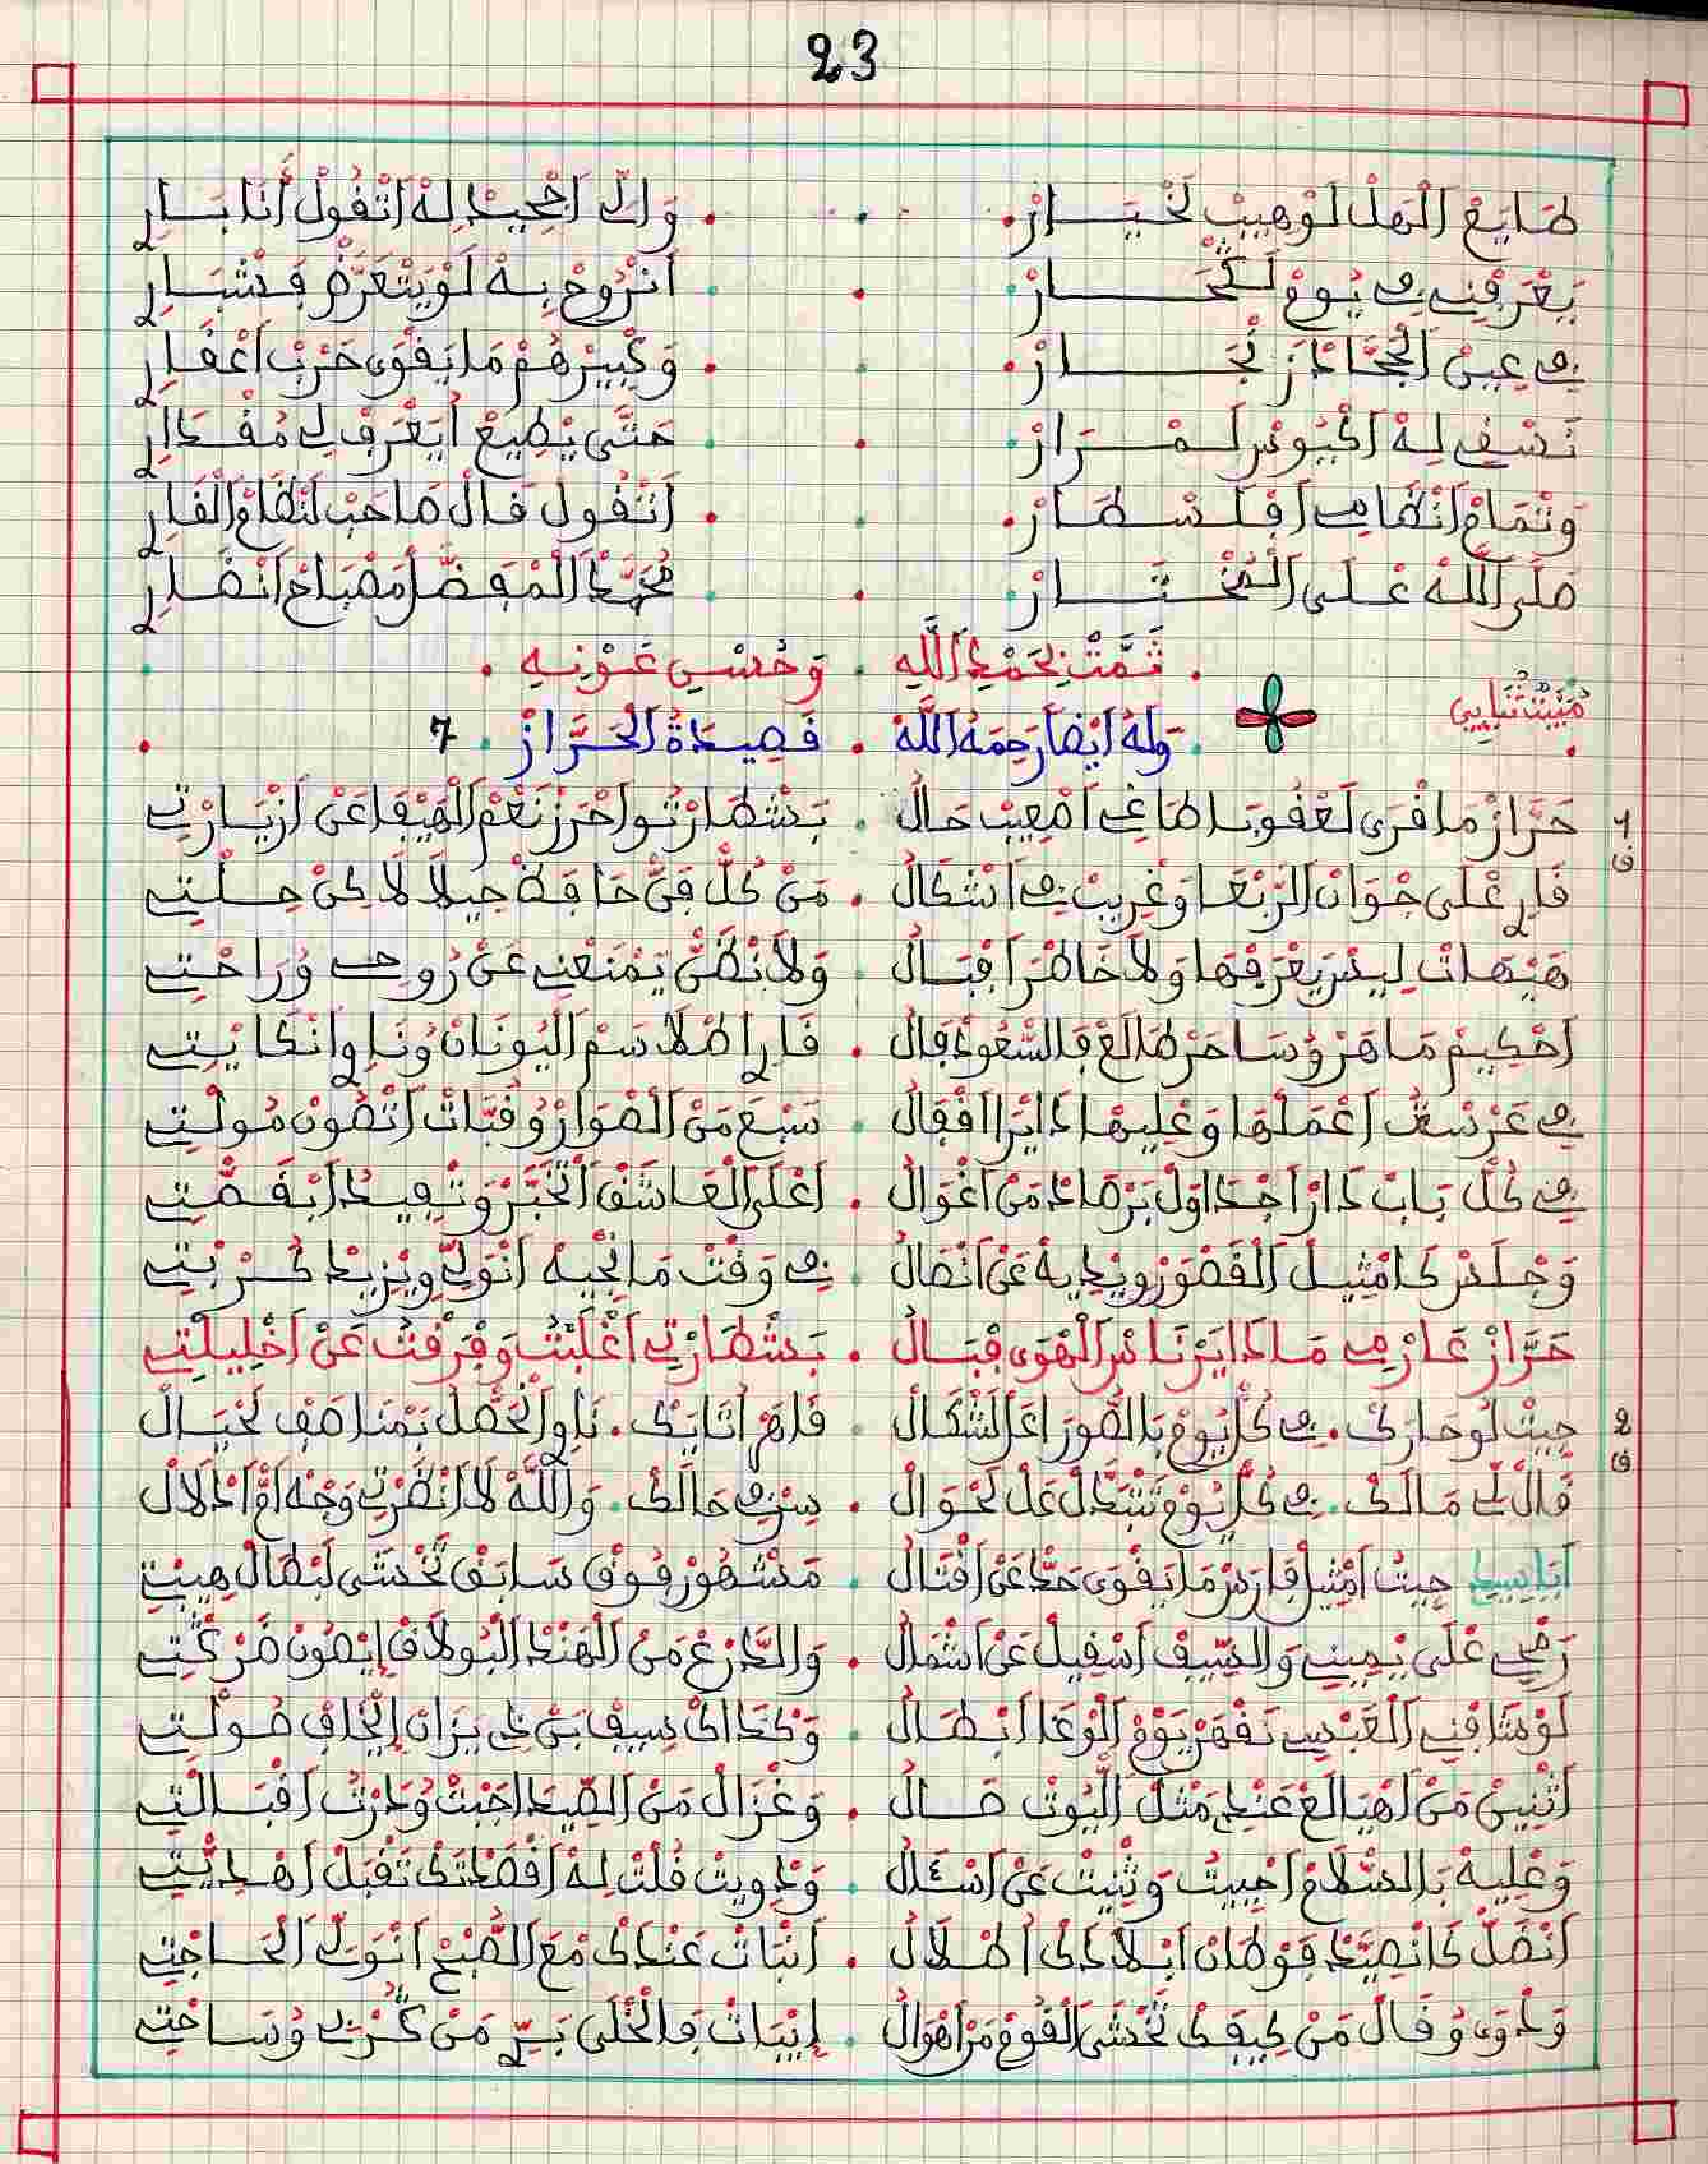 23
طَايَعْ اَلْهَلْ لَوْهِيبْ لَخْيَـــارْ . وَالِّي اجْحِيدْ لِهْ اَتْقُولْ أَنَا بَـــارِي
يَعْرَفْنِي فِي يُومْ لَـــارْ . انْرُوحْ بِهْ لَوْ يَتْعَرَّضْ فَشْبَـــارِي
فِي عِينْ الْجَحَّادْ نَجَـــارْ . وَكْبِيرْهُمْ مَا يَقْوَى حَرْبْ اعْقَارِي
نَسْقِي لِهْ اكْيُوسْ لَمْـــرَارْ . حَتَّى يْطِيعْ ايَعْرَفْ لِي مُقْـــدَارِي
وَتْمَامْ اَنْظَامِي افْلَسْطَـــارْ . اَنْقُولْ قَالْ صَاحَبْ لَنْظَامْ الْقَارِي
صَلَّى اللَّهْ عْلَى الْمُخْتَـــارْ . مُحَمَّدْ الْمْفَضَّلْ مَصْبَاحْ انْظَـــارِي
تَمَّتْ بِحَمْدِ اللَّهِ . وَحُسْنِ عَوْنِهِ
مْبِيَّتْ ثْنَايِي
وَلَهُ أَيْضًا رَحِمَهُ اللَّهُ . قَصِيدَةُ الْحَرَّازْ . 7
1 ق حَرَّازْ مَا قْرَى لَعْقُوبَا طَاغِي اصْعِيبْ حَالُ . بَشْطَارْتُو احْرَزْ نَعْمْ الْهَيْفَا عَنْ ازْيَـــارْتِي
قَارِي عْلَى جْوَانْ الرَّبْعَا وَغْرِيبْ فِي اشْكَالُ . مَنْ كُلّْ فَنّْ حَافَظْ حِيلَا لَاكِنْ حِـــلْتِي
هَيْهَاتْ لِيسْ يَعْرَفْهَا وَلَا خَاطْرَا فْبَـــالُ . وَلَا نْظَنّْ يَمْنَعْنِي عَنْ رُوحِي وُرَاحْتِي
احْكِيمْ مَاهَرْ وُسَاحَرْ طَالَعْ فَالسّْعُودْ فَالُ . قَارِي اطْلَاسَمْ الْيُونَانْ وُنَاوِي انْكَايْتِي
فِي عَرْشَتُ اعْمَلْهَا وَعْلِيهَا دَايَرْ اقْفَالُ . سَبْعْ مَنْ الصْوَارْ وُقُبَّاتْ اتْصُونْ مُولْتِي
فِي كُلّْ بَابْ دَارْ اجْدَاوَلْ بَرْصَادْ مَنْ اغْوَالُ . اعْلَى الْعَاشَقْ اتْخَبَّرْ وَتْعِيدْ ابْقَصّْتِي
وَجْلَسْ كَامْثِيلْ الْقَصْوَرْ وِيدِيهْ عَنْ انْصَالُ . فِي وَقْتْ مَا نْجِيهْ انْوَلِّي وِيْزِيدْ كُـــرْبْتِي
حَرَّازْ عَارْفِي مَاذَايَرْ نَاسْ الْهْوَى فْبَـــالُ . بَشْطَارْتِي اغْلَبْتُ وَفْرَقْتُ عَنْ اخْلِيلْتِي
2 ق جِيتْ لُو حَارَكْ . فِي كُلّْ يُومْ بَالصُّورْ اعْلَ لَشْكَالْ . فَاهَمْ اتَايَكْ . نَاوِي الْخَصْلْ بَمْنَاصَفْ لَحْيَـــالْ
قَالْ لِي مَالَكْ . فِي كُلّْ يُومْ تَتْبَدَّلْ عَلْ لَحْوَالْ . سِرْ فِي حَالَكْ . وَاللَّهْ لَا انْظَرْتِي وَجْهْ امّْ ادْلَالْ
أَيَا سِيدِي جِيتُ امْثِيلْ فَارَسْ مَا يَقْوَى حَدّْ عَنْ اقْتَالُ . مَشْهُورْ فُوقْ سَابَقْ تَخْشَى لَبْطَالْ هِيبْتِي
رَمْحِي عْلَى يْمِينِي وَالسِّيفْ اسْقِيلْ عَنْ اشْمَالُ . وَالدَّرْعْ مَنْ الْهَنْدْ الْبُولَاقْ ايْصُونْ ضَرْكْتِي
لَوْ صَادَفْنِي الْعَبْسِي نَقْهَرْ يَوْمْ الْوْغَا ابْطَـــالُ . وَكْدَاكْ سِيفْ بَنْ ذِي يَزَانْ ايْخَافْ صُولْتِي
اثْنِينْ مَنْ اهْيَالَعْ عَنْدِي مَثْلْ الْيُوتْ صَـــالُ . وَغْزَالْ مَنْ الصِّيدْ اجَبْتُ وُدَرْتُ اقْبَـــالْتِي
وَعْلِيهْ بَالسْلَامْ اجِيتْ وَثْنِيتْ عَنْ اسْئَالُ . وَدْوِيتْ قُلْتْ لِهْ اقْصَدْتَكْ تَقْبَلْ اهْدِيّْتِي
انْظَلّْ كَانْصِيَّدْ فَوْطَانْ ابْلَادَكْ اطْـــلَالُ . انْبَاتْ عَنْدَكْ مْعَ الصّْبَحْ انْوَلِّي الْحَـــاجْتِي
وَدْوَى وُقَالْ مَنْ كِيفَكْ تَخْشَى الْقُومْ مَنْ اهْوَالُ . ايْبَاتْ فَالْخْلَى بَرِّي مَنْ حُرْمِي وُسَـــاحْتِي